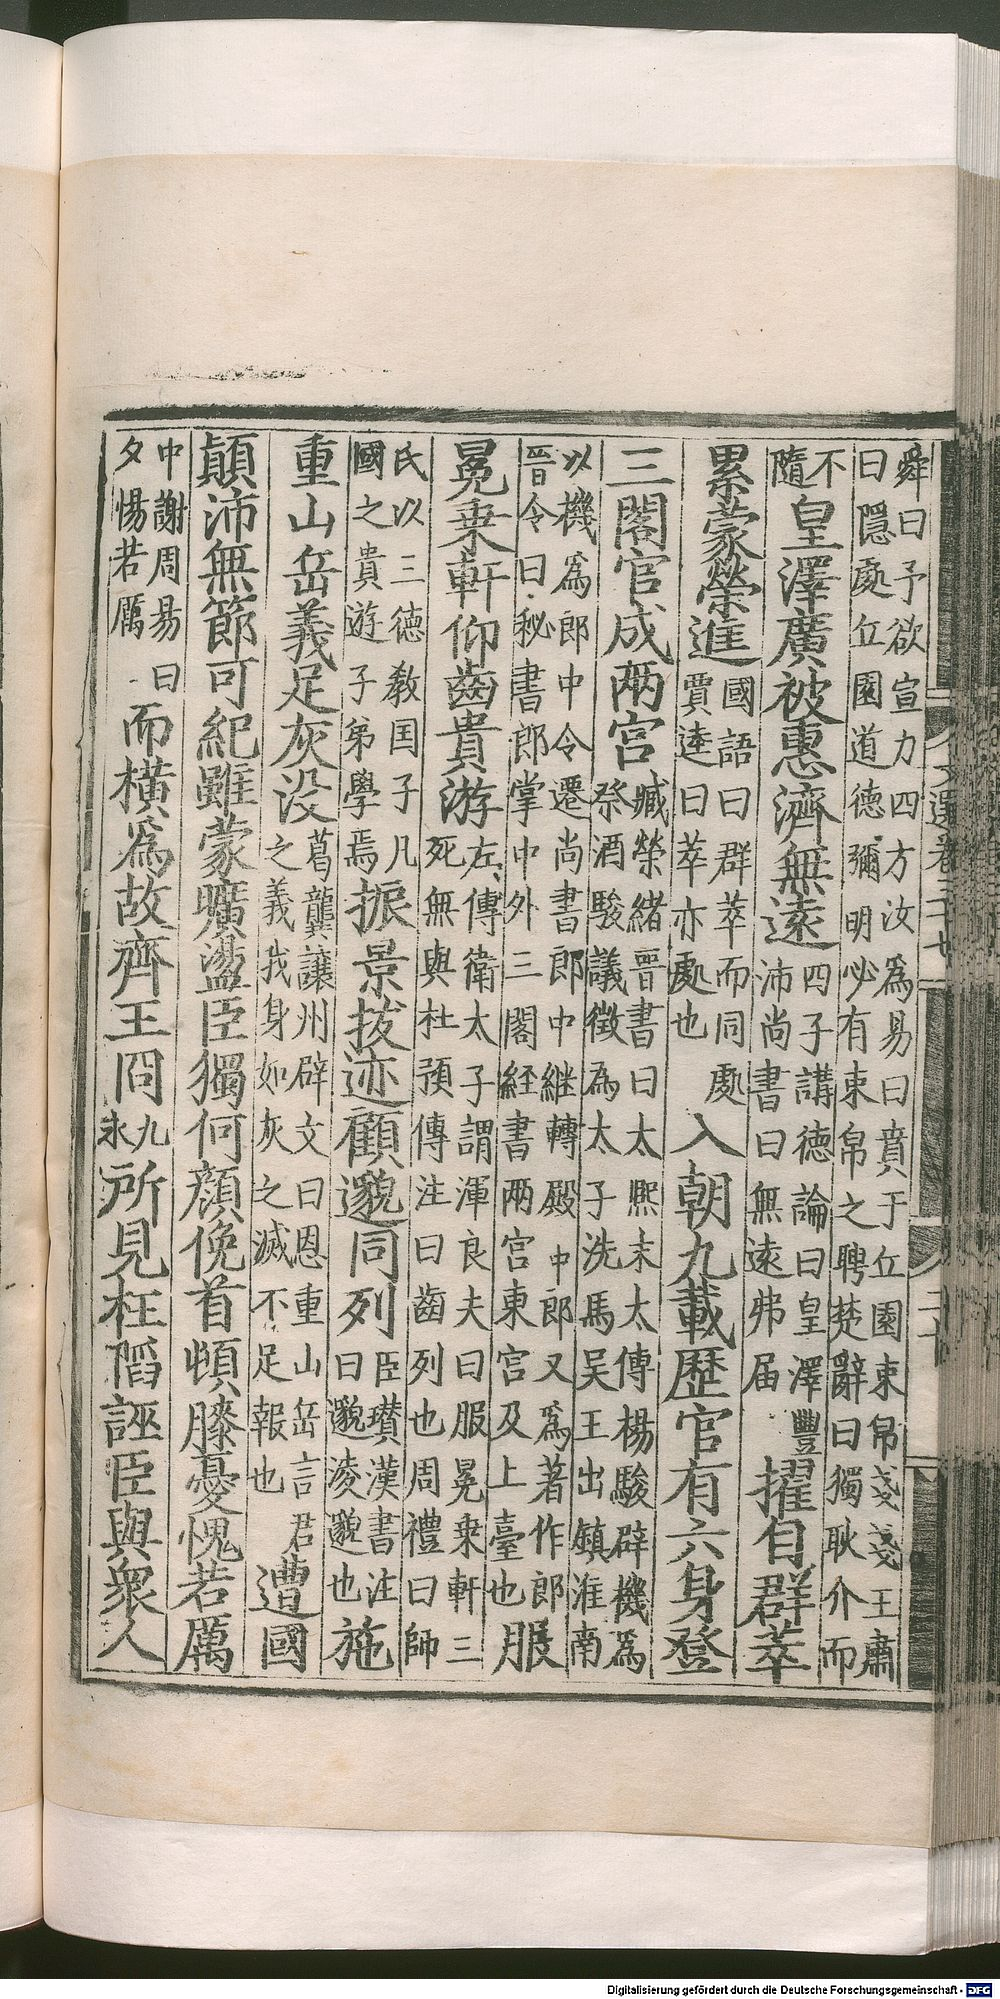 舜曰予欲宣力四方汝為易曰賁于丘園束帛戔戔王肅
曰隱處丘園道德彌明必有束帛之聘楚辭曰獨耿介而
不隨皇澤廣被惠濟無遠四子講德論曰皇澤豐沛尚書曰無遠弗届擢自群萃
累蒙榮進國語曰群萃而同處賈逵曰萃亦處也入朝九載歷官有六身登
三閣官成兩宮臧榮緒晉書曰太熙末太傅楊駿辟機為祭酒駿議徵為太子洗馬吳王出鎮淮南
以機為郎中令遷尚書郎中継轉殿中郎又為著作郎晉令曰秘書郎掌中外三閣経書兩宮東宮及上臺也服
冕乗軒仰齒貴游左傳衛太子謂渾良夫曰服冕乗軒三死無與杜預傳注曰齒列也周禮曰師
氏以三德教国子凡國之貴遊子弟學焉振景拔迹顧邈同列臣瓉漢書注曰邈凌邈也施
重山岳義足灰没葛龔讓州辟文曰恩重山岳言君之義我身如灰之滅不足報也遭國
顛沛無節可紀雖蒙曠盪臣獨何顔俛首頓膝憂愧若厲
中謝周易曰夕惕若厲而橫為故齊王冏九永所見枉䧟誣臣與衆人
Digitalisierung gefördert durch die Deutsche Forschungsgemeinschaft - DFG